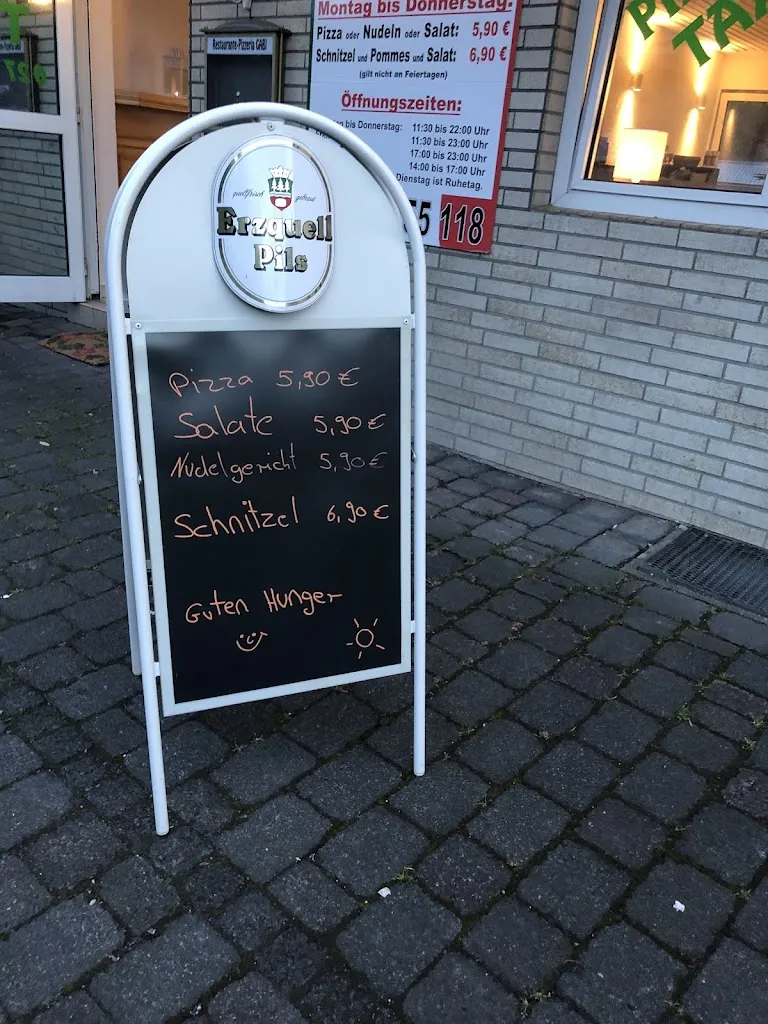 Restaurante-Pizzeria GABI
Montag bis Donnerstag:
Pizza oder Nudeln oder Salat: 5,90 €
Schnitzel und Pommes und Salat: 6,90 €
(gilt nicht an Feiertagen)
Öffnungszeiten:
bis Donnerstag: 11:30 bis 22:00 Uhr
11:30 bis 23:00 Uhr
17:00 bis 23:00 Uhr
14:00 bis 17:00 Uhr
Dienstag ist Ruhetag.
5 118
quellfrisch gebraut
Erzquell
Pils
Pizza 5,90 €
Salate 5,90 €
Nudelgericht 5,90 €
Schnitzel 6,90 €
Guten Hunger